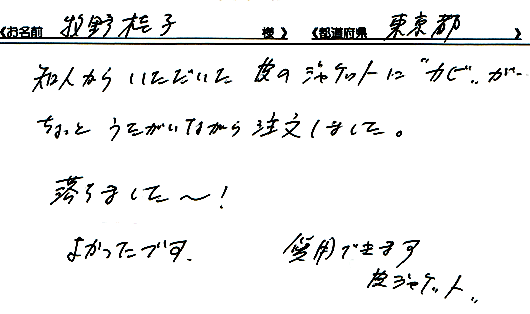 《お名前 牧野桂子 様》 《都道府県 東京都 》
知人からいただいた 皮のジャケットに"カビ"が…
ちょっと うたがいながら 注文しました。
落ちました〜!
よかったです.
愛用できます
皮ジャケット"